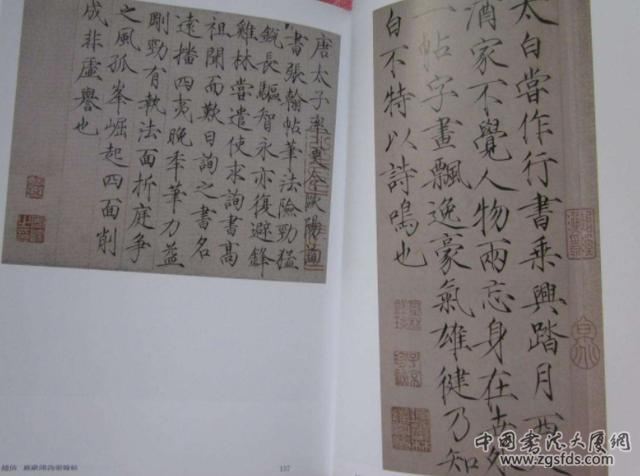 唐太子率更令歐陽詢
書張翰帖筆法險勁猛
銳長驅智永亦復避鋒
雞林嘗遣使求詢書高
祖聞而歎曰詢之書名
遠播四夷晚年筆力益
剛勁有執法面折庭爭
之風孤峯崛起四面削
成非虛譽也
137
太白嘗作行書乘興踏月西
酒家不覺人物兩忘身在世
一帖字畫飄逸豪氣雄健乃知
白不特以詩鳴也
中國書法大厦網
www.zgsfds.com